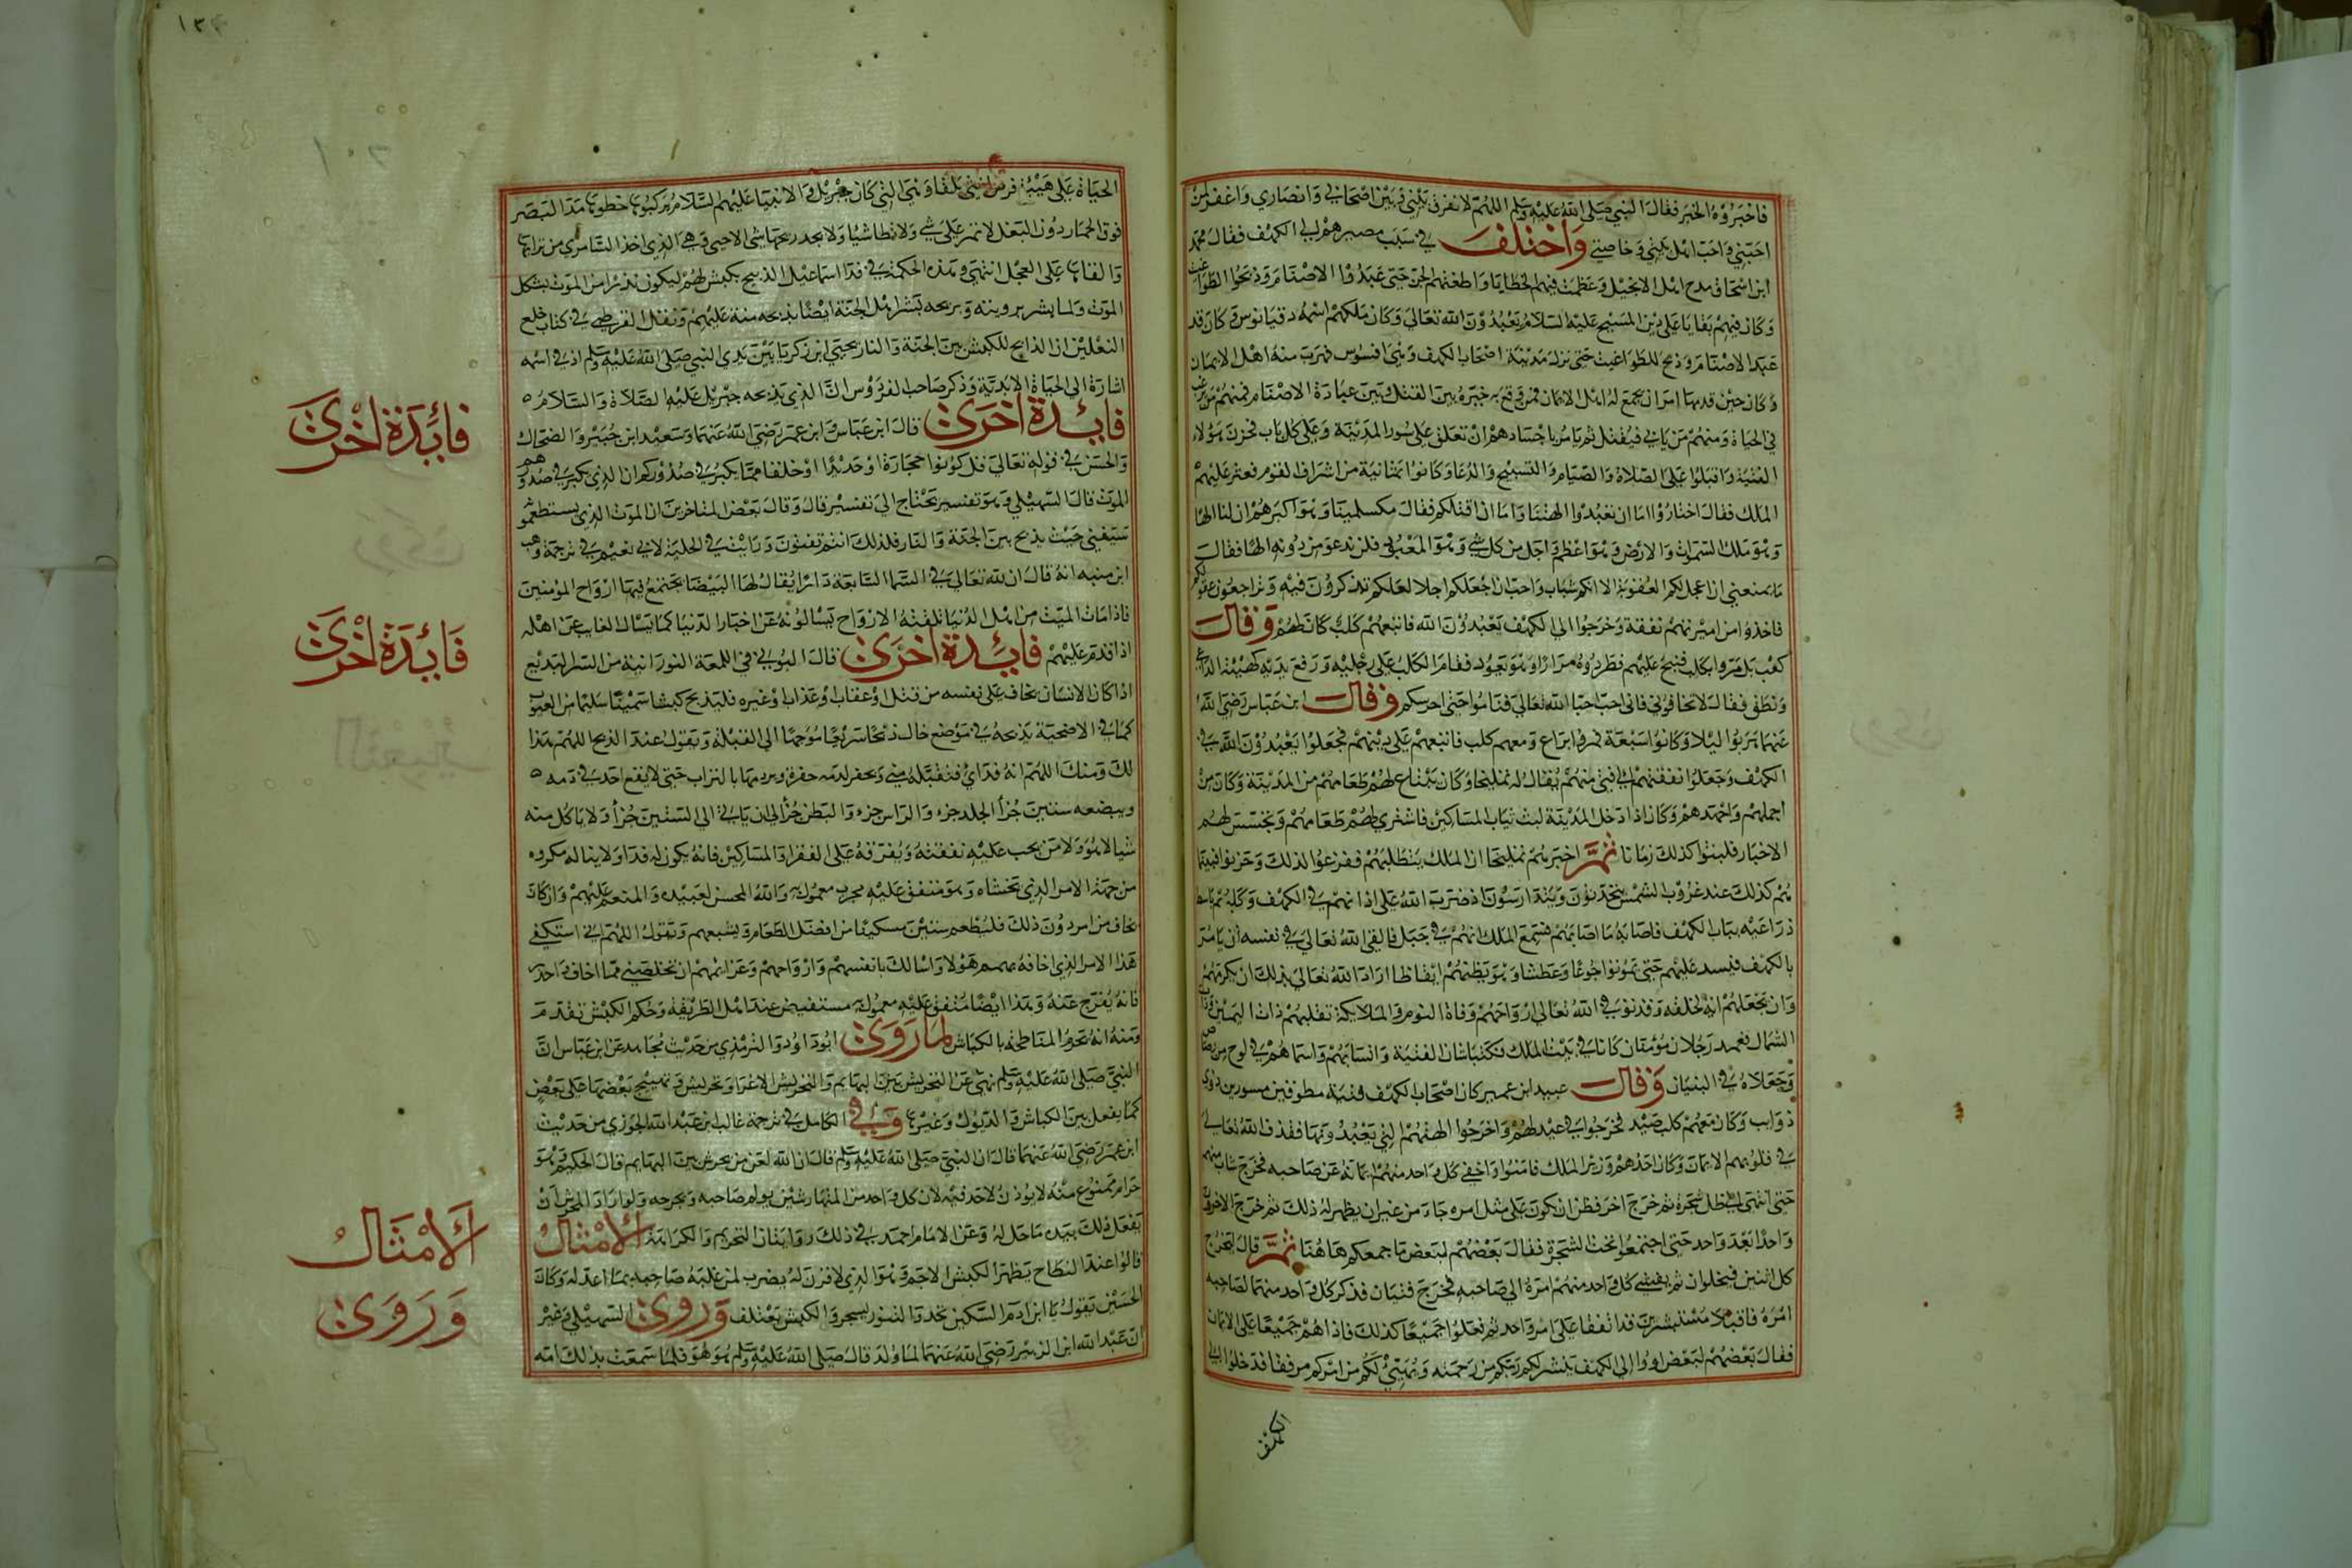 فاخبروه الخبر فقال النبي صلى الله عليه وسلم اللهم لا تفرق بيني وبين اصحابي وانصاري واغفر لمن
احبني واحب اهل بيتي وخاصتي واختلف في سبب مصيرهم الى الكهف فقال محمد
ابن اسحاق مرج اهل الانجيل وعظمت فيهم الخطايا واطغتهم الجن حتى عبدوا الاصنام وذبحوا للطواغيت
وكان فيهم بقايا على دين المسيح عليه السلام يعبدون الله تعالى وكان ملكهم اسمه دقيانوس وكان قد
عبد الاصنام وذبح للطواغيت حتى نزل مدينة اصحاب الكهف وهي افسوس فهرب منه اهل الايمان
وكان حين قدمها امر ان يجمع له اهل الايمان فمن وقع به خيره بين القتل وبين عبادة الاصنام فمنهم من يرغب
في الحياة ومنهم من يابى فيقتل ثم يامر باجسادهم ان تعلق على سور المدينة وعلى كل باب فحزن هولاء
الفتية واقبلوا على الصلاة والصيام والتسبيح والدعا وكانوا ثمانية من اشراف القوم فعثر عليهم
الملك فقال اختاروا اما ان تعبدوا الهتنا واما ان اقتلكم فقال مكسلمينا وهو اكبرهم ان لنا الها
وهو ملك السموات والارض وهو اعظم واجل من كل شي وهو المعبود فلن ندعو من دونه الها فقال
ما يمنعني ان اعجل لكم العقوبة الا انكم شباب واحب ان اجعل لكم اجلا لعلكم تذكرون فيه وتراجعون عقولكم
فاخذوا من امير نهم نفقة وخرجوا الى الكهف يعبدون الله فاتبعهم كلب كان لهم وقال
كعب بل مروا بكلب فنبح عليهم فطردوه مرارا وهو يعود فقام الكلب على رجليه ورفع يديه كهيئة الداعي
ونطق فقال لا تخافوني فاني احب احبا الله تعالى فناموا حتى احرسكم وقال ابن عباس رضي الله
عنهما هربوا ليلا وكانوا سبعة فمروا براع ومعهم كلب فاتبعهم على دينهم فجعلوا يعبدون الله في
الكهف وجعلوا نفقتهم الى فتى منهم يقال له تمليخا وكان يبتاع لهم طعامهم من المدينة وكان من
اجملهم واجلدهم وكان اذا دخل المدينة لبث ثياب المساكين فاشترى لهم طعامهم وتجسس لهم
الاخبار فلبثوا كذلك زمانا ثم اخبرهم تمليخا ان الملك يتطلبهم ففزعوا لذلك وحزنوا فبينما
هم كذلك عند غروب الشمس يتحدثون ويتدارسون اذ ضرب الله على اذانهم في الكهف وكلبهم باسط
ذراعيه بباب الكهف فاصابه ما اصابهم فسمع الملك انهم في جبل فالقى الله تعالى في نفسه ان يامر
بالكهف فيسد عليهم حتى يموتوا جوعا وعطشا وهو يظنهم ايقاظا اراد الله تعالى بذلك ان يكرمهم
وان يجعلهم اية لخلقه وقد توفى الله تعالى ارواحهم وفاة النوم والملايكة تقلبهم ذات اليمين وذات
الشمال فعمد رجلان مؤمنان كانا في بيت الملك فكتبا شان الفتية وانسابهم واسماهم في لوح من رصاص
وجعلاه في البنيان وقال عبيد ابن عمير كان اصحاب الكهف فتية مطوقين مسورين ذوي
ذوايب وكان معهم كلب صيد فخرجوا في عيد لهم واخرجوا الهتهم التي يعبدونها فقذف الله تعالى
في قلوبهم الايمان وكان احدهم وزير الملك فامنوا واخفى كل واحد منهم ايمانه عن صاحبه فخرج شاب منهم
حتى انتهى الى ظل شجرة ثم خرج اخر فظن ان يكون على مثل امره جا من غير ان يظهر له ذلك ثم خرج الاخرون
واحدا بعد واحد حتى اجتمعوا تحت الشجرة فقال بعضهم لبعض ما جمعكم هاهنا ثم قال ليخرج
كل اثنين فيخلوان ثم يفشي كل واحد منهم امره الى صاحبه فخرج فتيان فذكر كل واحد منهما لصاحبه
امره فاقبلا مستبشرين قد اتفقا على امر واحد ثم فعلوا جميعا كذلك فاذا هم جميعا على الايمان
فقال بعضهم لبعض اووا الى الكهف ينشر لكم ربكم من رحمته ويهيئ لكم من امركم مرفقا فدخلوا الى
الكهف
١٣٤
الحياة على هيئة فرس انثى بلقا وهي التي كان جبريل والانبيا عليهم السلام يركبونها خطوها مد البصر
فوق الحمار دون البغل لا تمر على شي ولا تطا شيا ولا يجد ريحها شي الا حيي وهي الذي اخذ السامري من ترابها
والقاه على العجل انتهى وهذه الحكمة في فدا اسماعيل الذبيح بكبش لهم ليكون نذيرا من الموت بشكل
الموت ولما يشير برويته وبريحه بشر اهل الجنة ايضا بذبحه منة عليهم ونقل القرطبي في كتاب خلع
النعلين ان الذابح للكبش بين الجنة والنار يحيى ابن زكريا بين يدي النبي صلى الله عليه وسلم اذ في اسمه
اشارة الى الحياة الابدية وذكر صاحب الفردوس ان الذي يذبحه جبريل عليه الصلاة والسلام ٥
فايدة اخرى قال ابن عباس وابن عمر رضي الله عنهما وسعيد ابن جبير والضحاك
والحسن في قوله تعالى قل كونوا حجارة او حديدا او خلقا مما يكبر في صدوركم ان الذي يكبر في صدورهم
الموت قال السهيلي وهو تفسير يحتاج الى تفسير قال وقال بعض المتاخرين ان الموت الذي يستطعمو
سيفنى حيث يذبح بين الجنة والنار فلذلك انتم تفنون ورايت في الحلية لابي نعيم في ترجمة وهب
ابن منبه انه قال ان لله تعالى في السما السابعة دارا يقال لها البيضا يجتمع فيها ارواح المؤمنين
فاذا مات الميت من اهل الدنيا تلقته الارواح يسالونه عن اخبار الدنيا كما يسال الغايب عن اهله
اذا قدم عليهم فايدة اخرى قال البوني في اللمعة النورانية من السر البديع
اذا كان الانسان يخاف على نفسه من قتل او عقاب او عذاب او غيره فليذبح كبشا سمينا سليما من العيوب
كما في الاضحية يذبحه في موضع خال ذبحا سريعا موجها الى القبلة ويقول عند الذبح اللهم هذا
لك ومنك اللهم انه فداي فتقبله مني ويحفر لدمه حفرة ويردمها بالتراب حتى لا يقع احد في دمه ٥
ويبضعه ستين جزأ الجلد جزء والراس جزء والبطن جزأ الى ان ياتي الى الستين جزأ ولا ياكل منه
شيا لا هو ولا من يجب عليه نفقته ويفرقه على الفقرا والمساكين فانه يكون له فدا ولا يناله مكروه
من جهة الامر الذي يخشاه وهو متفق عليه مجرب معمول به والله المحسن لعبيده والمنعم عليهم وان كان
يخاف من امر دون ذلك فليطعم ستين مسكينا من افضل الطعام ويشبعهم ويقول اللهم اني استكفي
هذا الامر الذي اخافه بهمم هولا واسالك بانفسهم وارواحهم وعزايمهم ان تخلصني مما اخاف واحذر
فانه يفرج عنه وهذا ايضا متفق عليه معمول به مستفيض عند اهل الطريقة وحكم الكبش تقدم
ومنه انه تحرم المناطحة بالكباش لما روى ابو داود والترمذي من حديث مجاهد عن ابن عباس ان
النبي صلى الله عليه وسلم نهى عن التحريش بين البهايم والتحريش الاغرا وتحريش وتهييج بعضها على بعض
كما يفعل بين الكباش والديوك وغيرها وفي الكامل في ترجمة غالب ابن عبد الله الجزري من حديث
ابن عمر رضي الله عنهما قال ان النبي صلى الله عليه وسلم قال ان الله لعن من يحرش بين البهايم قال الحليمي وهو
حرام ممنوع منه لا يؤذن لاحد فيه لان كل واحد من المتهارشين يولم صاحبه ويجرحه ولو اراد المحرش ان
يفعل ذلك بيده ما حل له وعن الامام احمد في ذلك روايتان التحريم والكراهة الامثال
قالوا عند النطاح يظهر الكبش الاجم وهو الذي لا قرن له يضرب لمن غلبه صاحبه بما اعد له وكان
الحسن يقول يا ابن ادم السكين تحد والتنور يسجر والكبش يعتلف وروى السهيلي وغير
ان عبد الله ابن الزبير رضي الله عنهما لما ولد قال صلى الله عليه وسلم هو هو فلما سمعت بذلك امه
فائدة اخرى
فائدة اخرى
الامثال
وروى